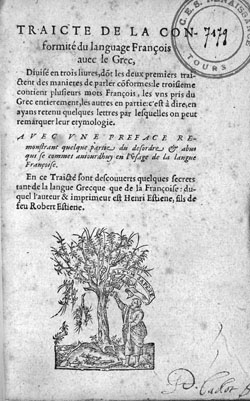 TRAICTE DE LA CON-
formité du language François
auec le Grec,
Diuisé en trois liures, dõt les deux premiers trai-
ctent des manieres de parler cõformes: le troisieme
contient plusieurs mots François, les vns pris du
Grec entierement, les autres en partie: c'est à dire, en
ayans retenu quelques lettres par lesquelles on peut
remarquer leur etymologie.
AVEC VNE PREFACE RE-
monstrant quelque partie du desordre & abus
qui se commet auiourdhuy en l'vsage de la langue
Françoise.
En ce Traicté sont descouuerts quelques secrets
tant de la langue Grecque que de la Françoise: du-
quel l'auteur & imprimeur est Henri Estiene, fils de
feu Robert Estiene.
7479
TOURS